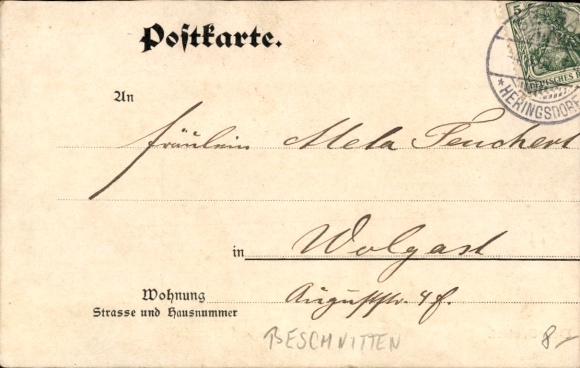 Postkarte.
5
DEUTSCHES
* HERINGSDORF
An
Fräulein Mela Feuchert
in Wolgast
Wohnung
Strasse und Hausnummer
Auguststr. 4f.
BESCHNITTEN
8,-